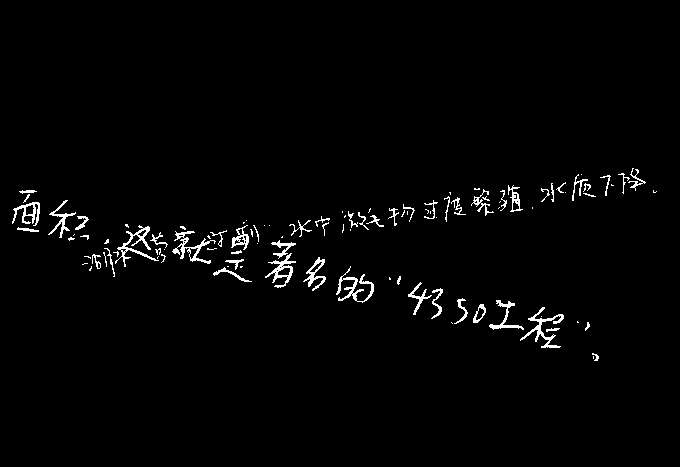 面积,这就是著名的“4350工程”。
过剩,水中微生物过度繁殖,水质下降.